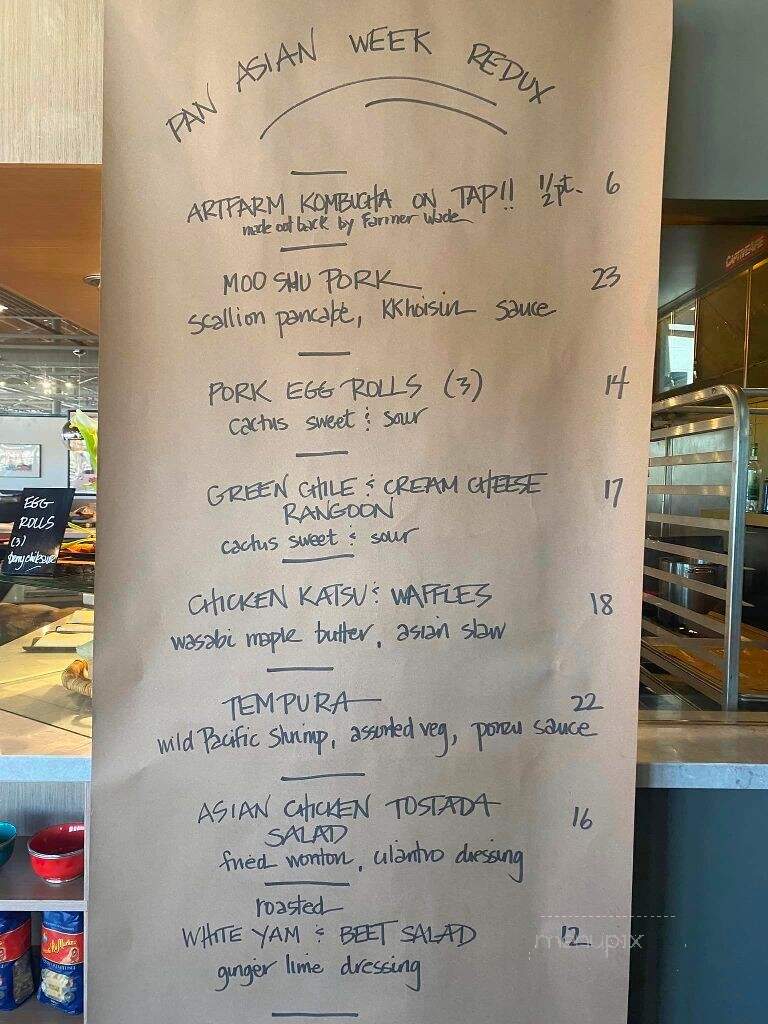 PAN ASIAN WEEK REDUX
ARTFARM KOMBUCHA ON TAP!! 1/2 pt. 6
made out back by Farmer Wade
MOO SHU PORK 23
scallion pancake, KKhoisin sauce
PORK EGG ROLLS (3) 14
cactus sweet & sour
GREEN CHILE & CREAM CHEESE 17
RANGOON
cactus sweet & sour
CHICKEN KATSU & WAFFLES 18
wasabi maple butter, asian slaw
TEMPURA 22
wild Pacific Shrimp, assorted veg, ponzu sauce
ASIAN CHICKEN TOSTADA 16
SALAD
fried wonton, cilantro dressing
roasted
WHITE YAM & BEET SALAD 12
ginger lime dressing
EGG
ROLLS
(3)
menupix